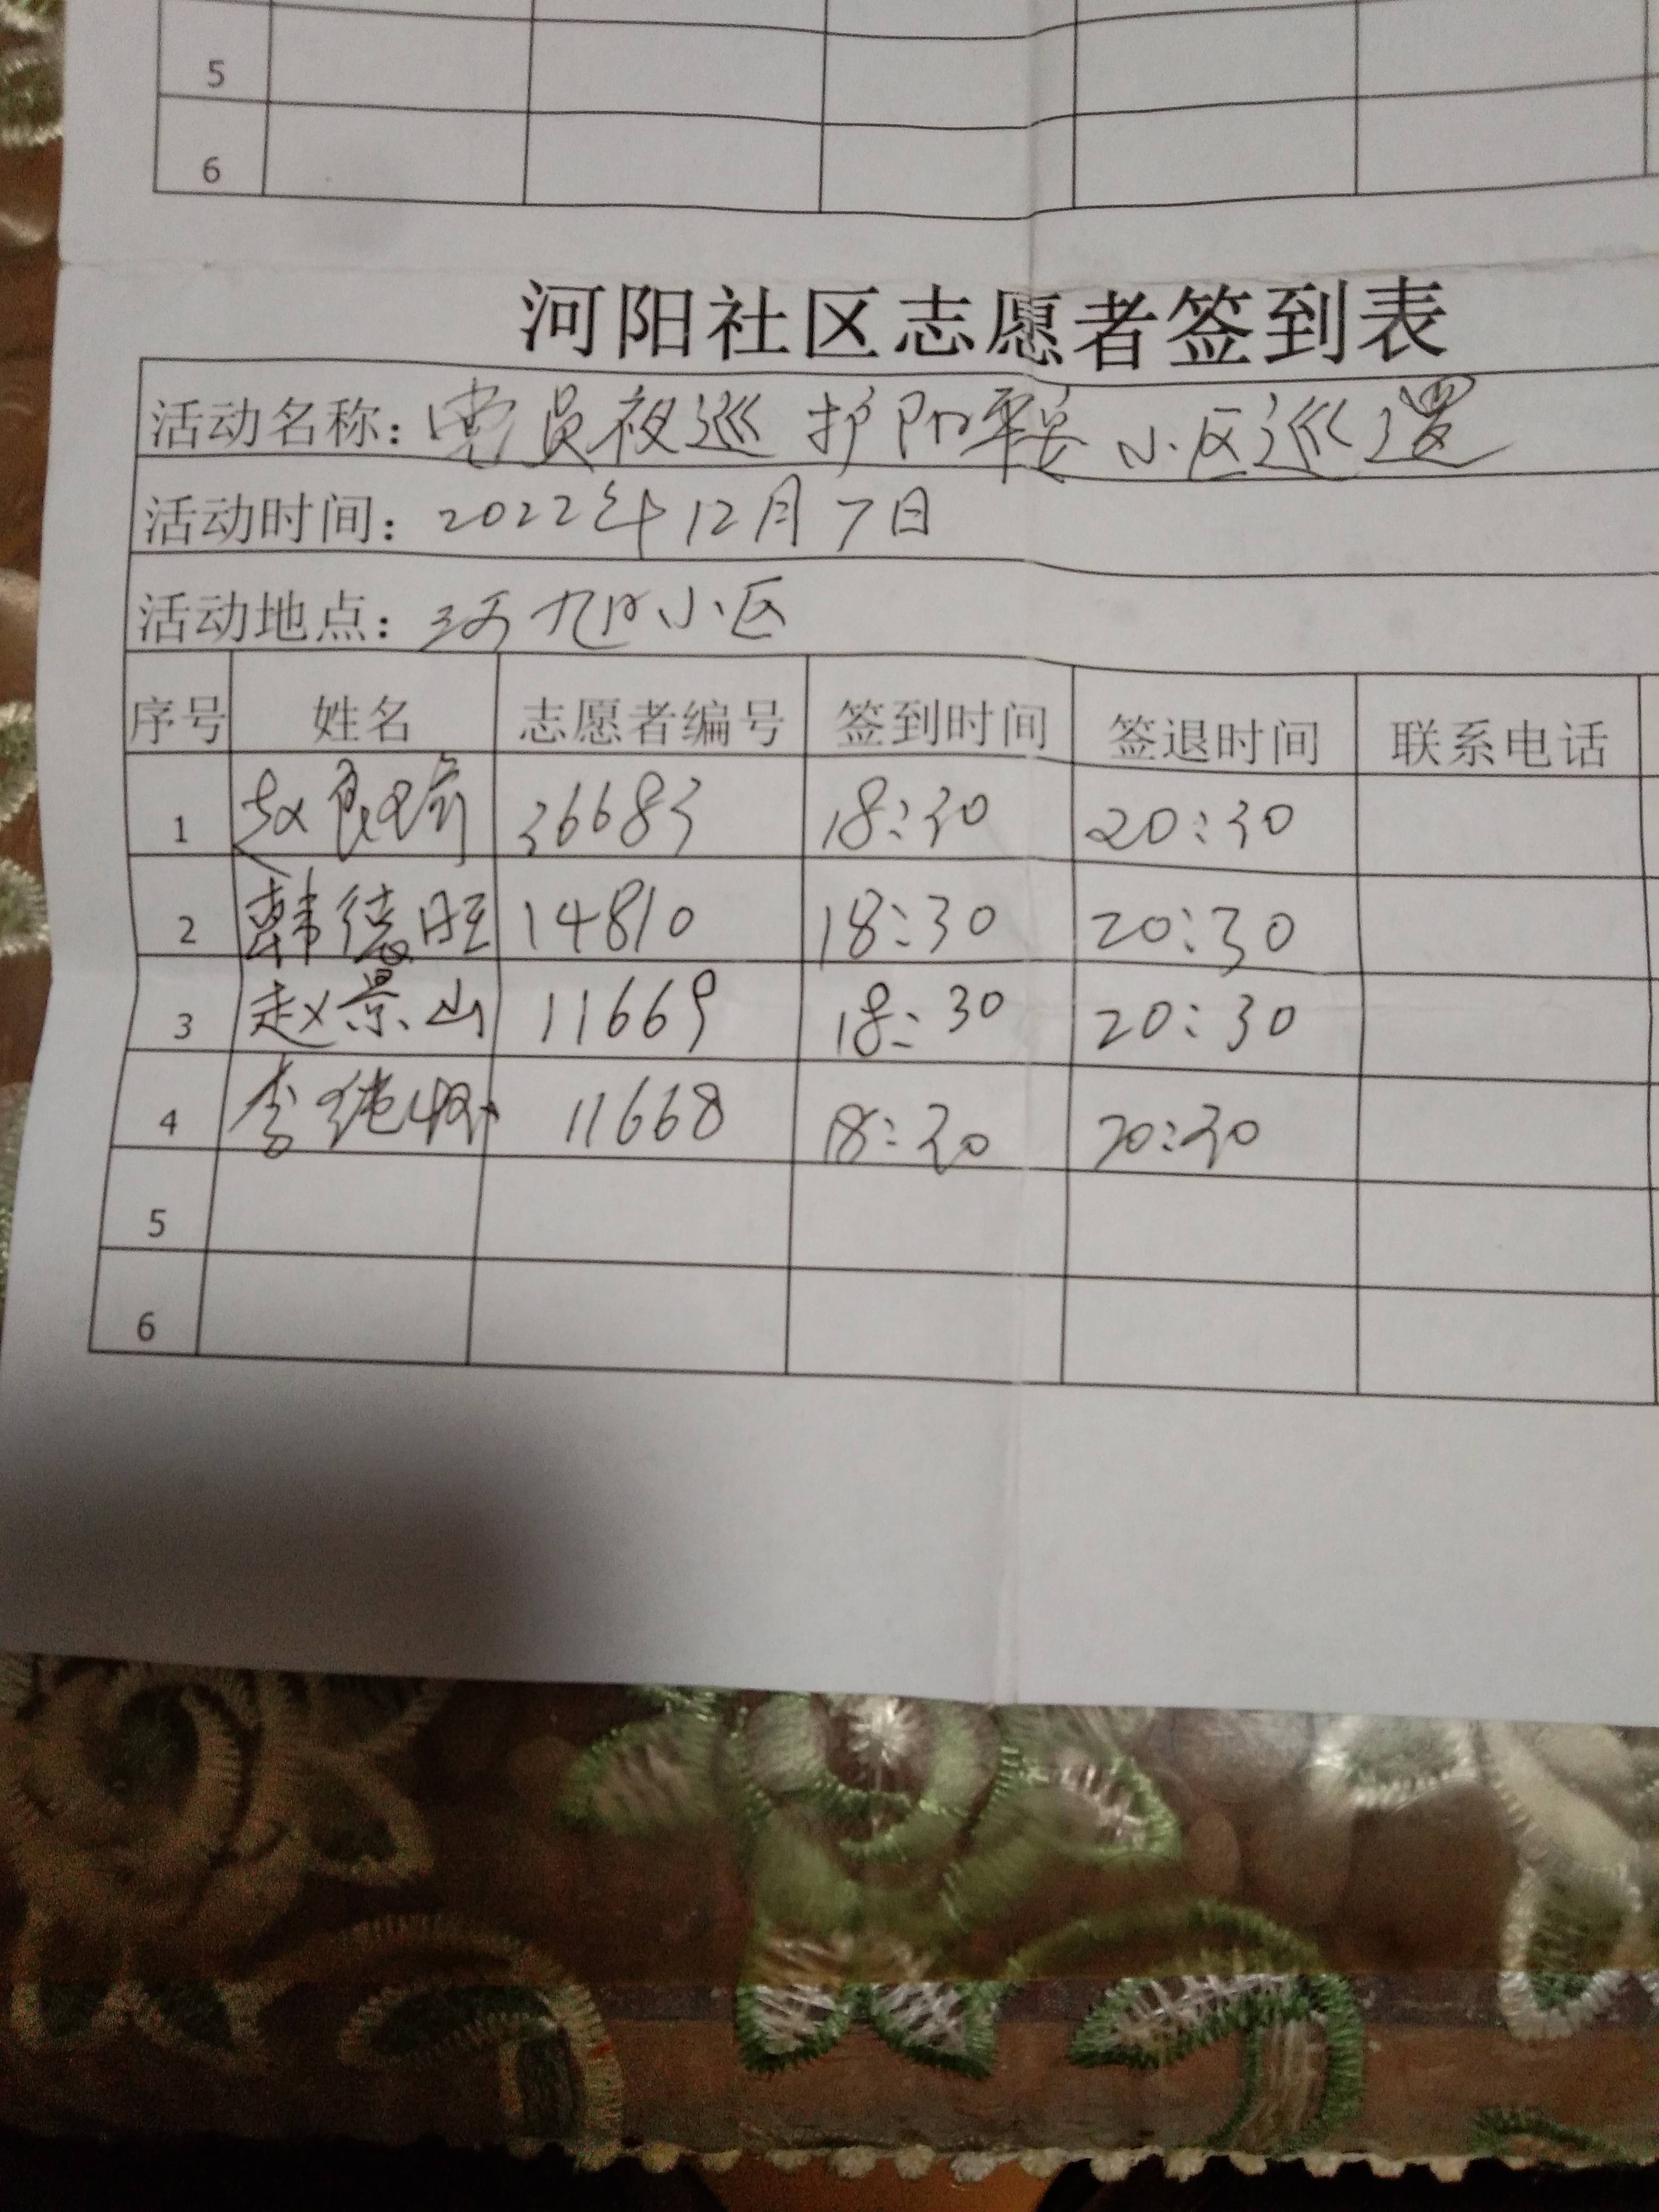 5
6
河阳社区志愿者签到表
活动名称：党员夜巡 护阳平安 小区巡逻
活动时间：2022年12月7日
活动地点：河旭小区
序号 姓名 志愿者编号 签到时间 签退时间 联系电话
1 赵良 36683 18:30 20:30
2 韩德旺 14810 18:30 20:30
3 赵景山 11669 18:30 20:30
4 李 11668 18:30 20:30
5
6